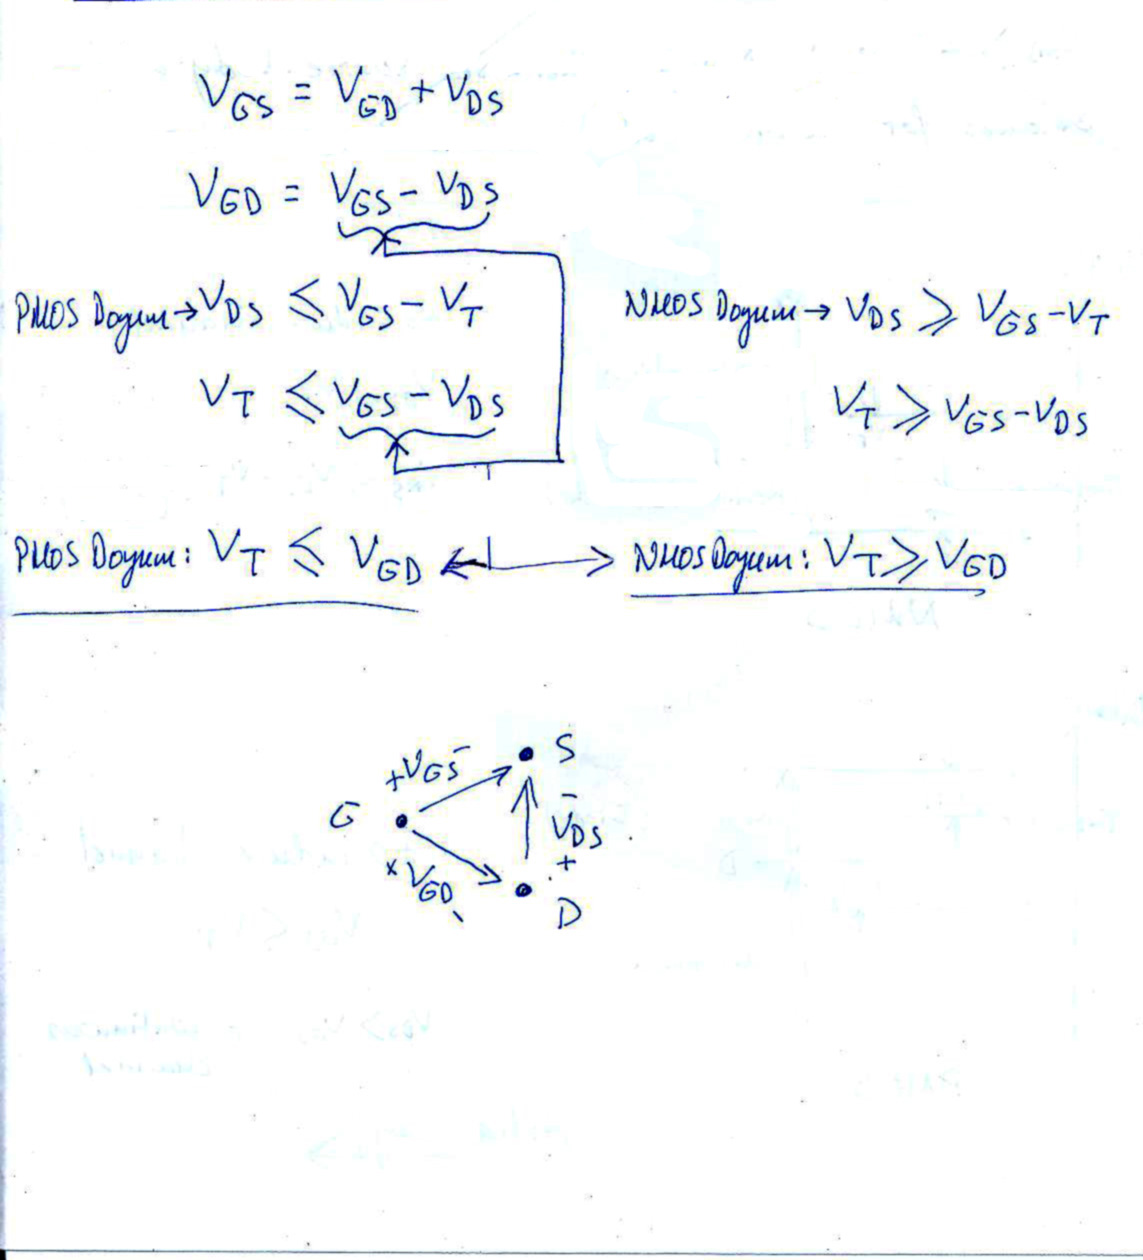 V_GS = V_GD + V_DS
V_GD = V_GS - V_DS
PMOS Doyum → V_DS ≤ V_GS - V_T
NMOS Doyum → V_DS ≥ V_GS - V_T
V_T ≤ V_GS - V_DS
V_T ≥ V_GS - V_DS
PMOS Doyum: V_T ≤ V_GD
NMOS Doyum: V_T ≥ V_GD
S
+V_GS-
G
-
V_DS
+
V_GD
D